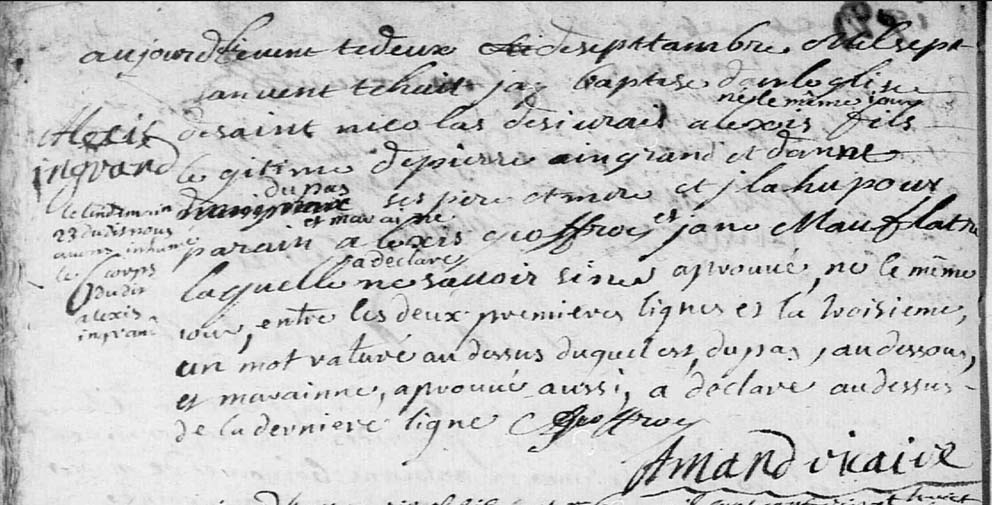 aujourdhievent tedeux de septtambre milsept
sanvent tehuit jay baptise danleglise
né le même jour
de saint nicolas desieurais alexis fils
le gitime depierre aingrand et danne
dupas
ses pere et mere et jlahupour
et marainne
parain alexis geoffroy et jane Mauflatre
a déclaré
laquelle nesavoir sine aprouvé, né le même
jour, entre les deux premieres lignes et la troisieme,
un mot raturé au dessus duquel est, dupas, au dessous,
et marainne, aprouvé aussi, a déclaré au dessus
de la derniere ligne Geoffroy
Amand vicaire
Alexis
ingrand
le lendemain
23 dudit nous
avons inhumé
le corps
dudit
alexis
ingrand